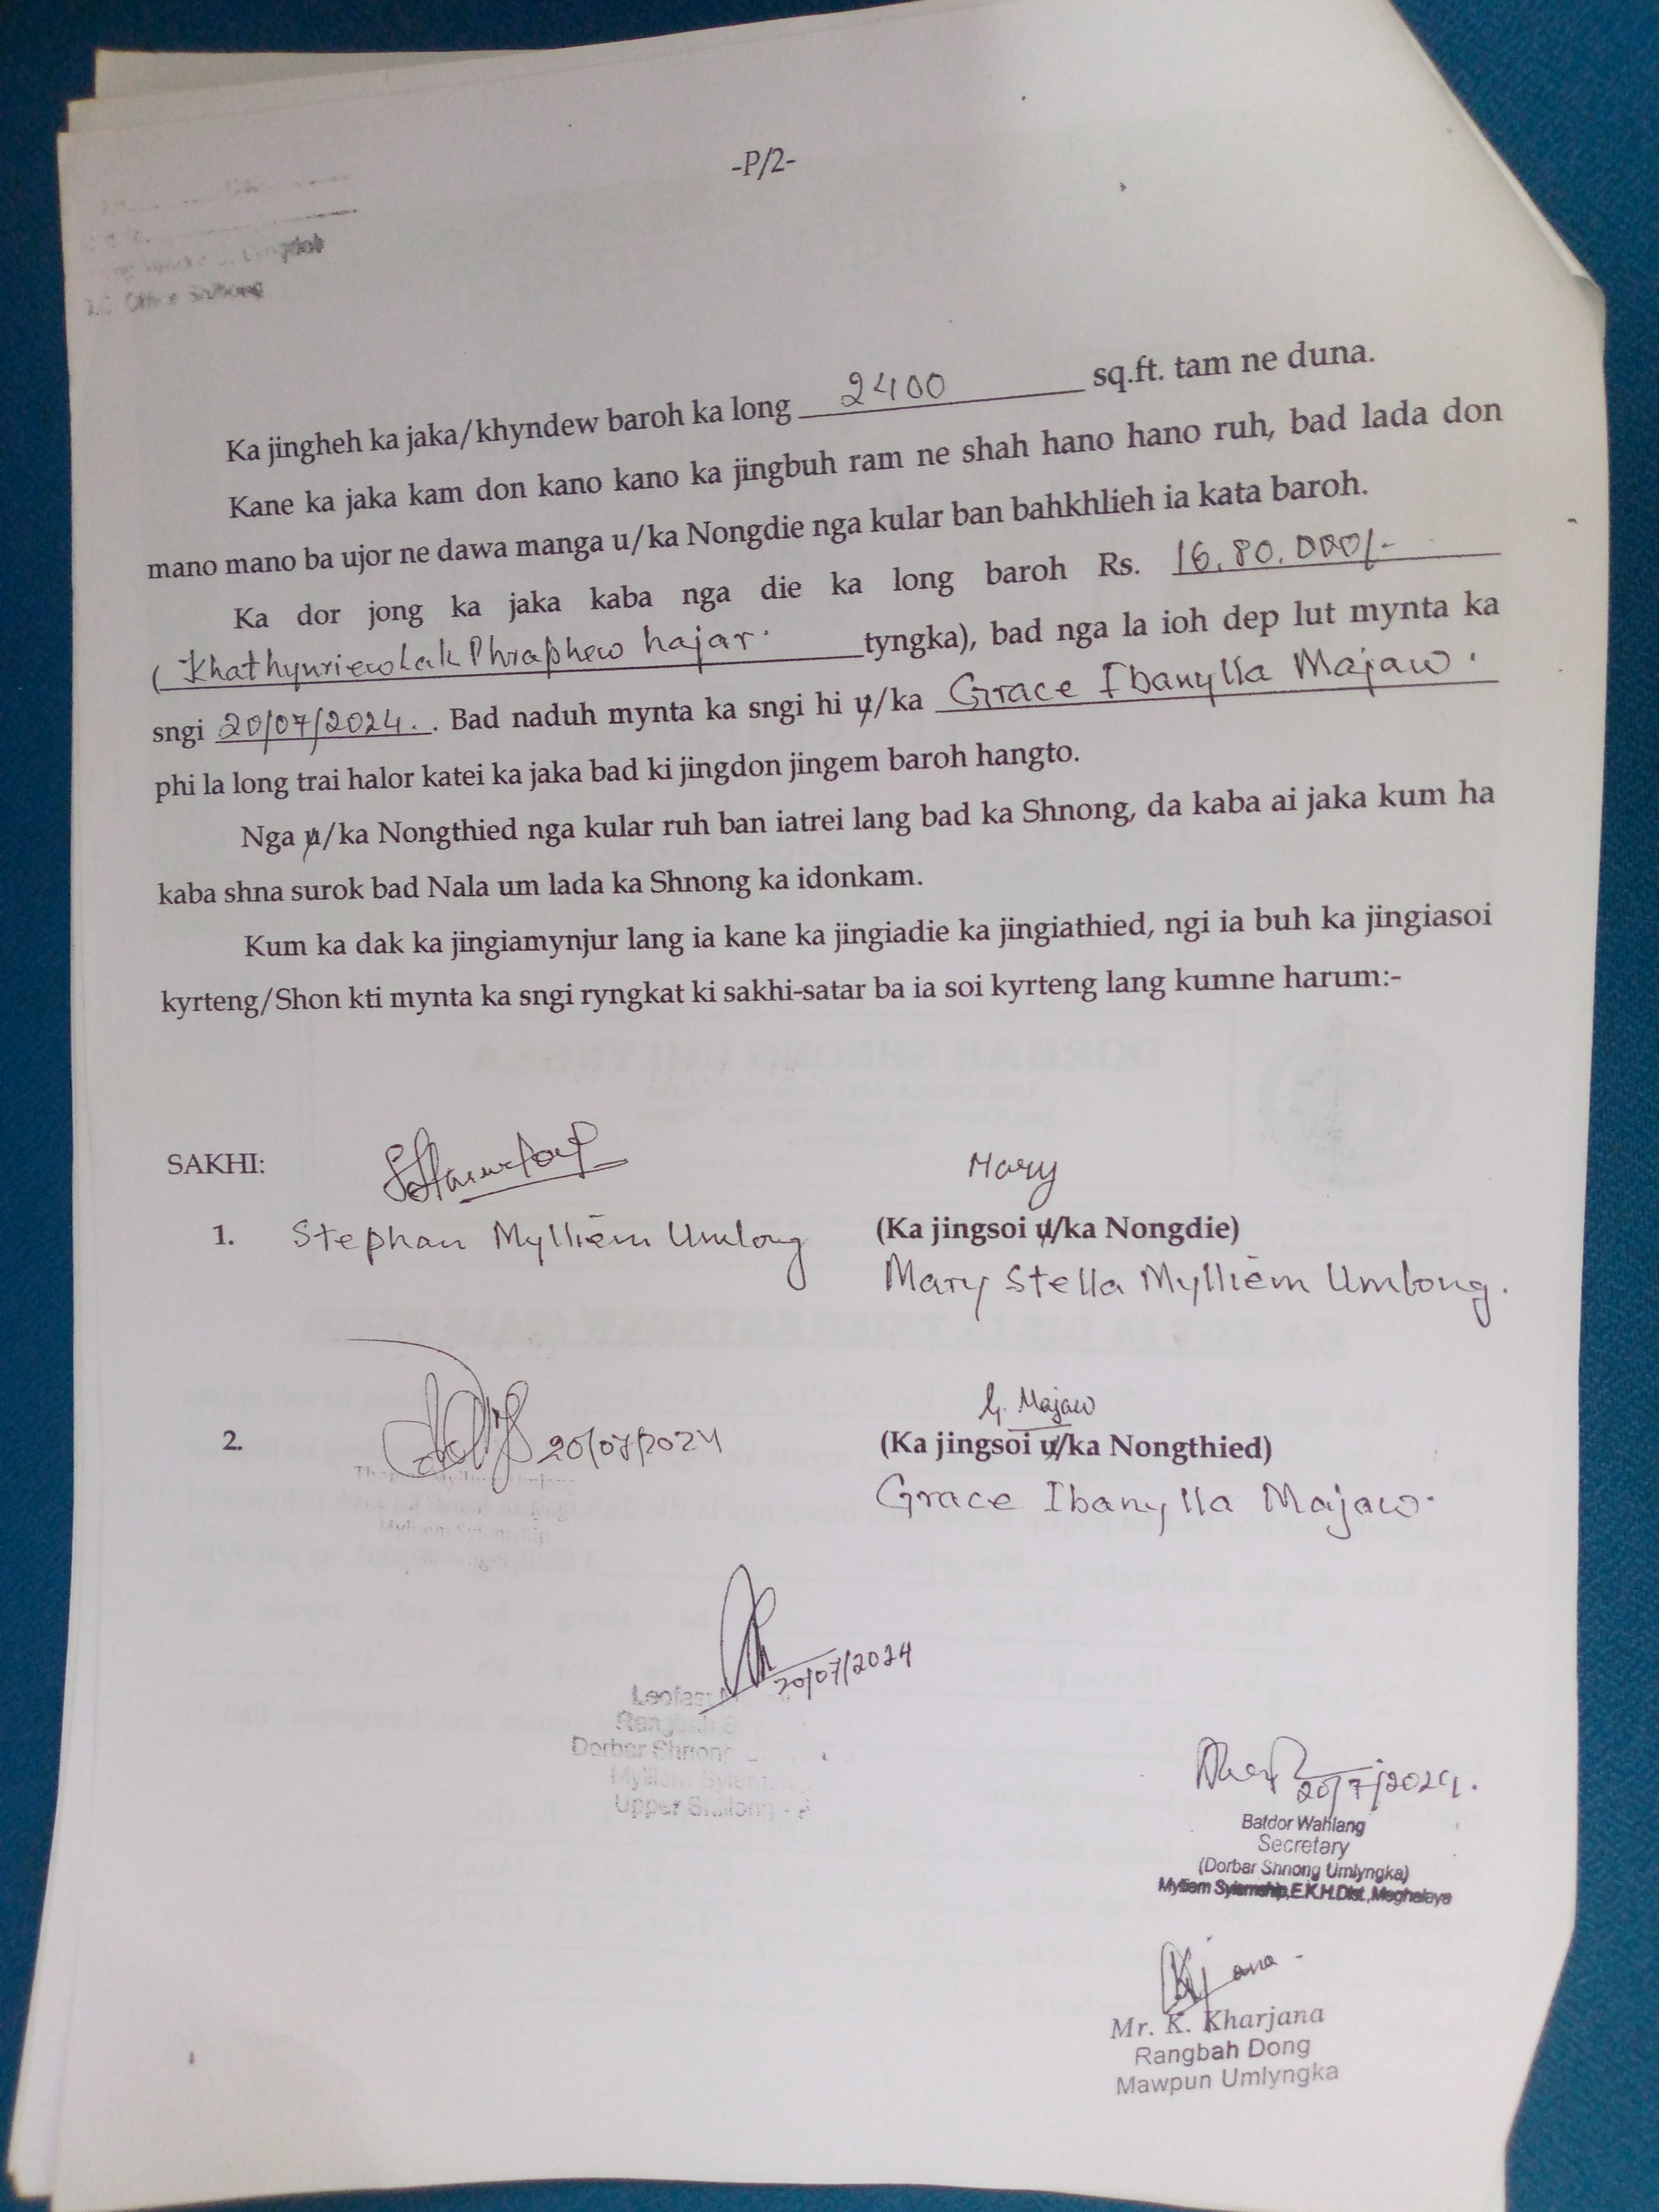 -P/2-
Office Shillong
Ka jingheh ka jaka/khyndew baroh ka long 2400 sq.ft. tam ne duna.
Kane ka jaka kam don kano kano ka jingbuh ram ne shah hano hano ruh, bad lada don
mano mano ba ujor ne dawa manga u/ka Nongdie nga kular ban bahkhlieh ia kata baroh.
Ka dor jong ka jaka kaba nga die ka long baroh Rs. 16,80,000/-
(Khathynriew Lak Phraphew hajar. tyngka), bad nga la ioh dep lut mynta ka
sngi 20/07/2024. . Bad naduh mynta ka sngi hi u/ka Grace Ibanylla Majaw.
phi la long trai halor katei ka jaka bad ki jingdon jingem baroh hangto.
Nga u/ka Nongthied nga kular ruh ban iatrei lang bad ka Shnong, da kaba ai jaka kum ha
kaba shna surok bad Nala um lada ka Shnong ka idonkam.
Kum ka dak ka jingiamynjur lang ia kane ka jingiadie ka jingiathied, ngi ia buh ka jingiasoi
kyrteng/Shon kti mynta ka sngi ryngkat ki sakhi-satar ba ia soi kyrteng lang kumne harum:-
SAKHI:
Mary
1. Stephan Mylliem Umlong
(Ka jingsoi u/ka Nongdie)
Mary Stella Mylliem Umlong.
G. Majaw
2. 20/07/2024
(Ka jingsoi u/ka Nongthied)
Grace Ibanylla Majaw.
20/07/2024
Dorbar Shnong
Upper Shillong
20/7/2024.
Batdor Wahlang
Secretary
(Dorbar Shnong Umlyngka)
Mylliem Syiemship,E.K.H.Dist.,Meghalaya
Mr. K. Kharjana
Rangbah Dong
Mawpun Umlyngka